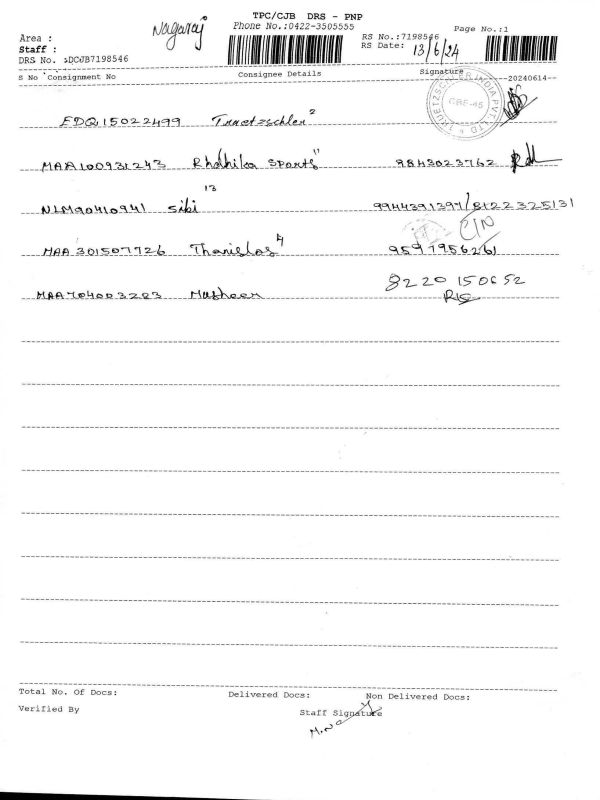 TPC/CJB DRS - PNP
Nagaraj
Phone No.:0422-3505555
Page No.:1
Area :
RS No.:7198546
Staff :
RS Date: 13/6/24
DRS No. :DCJB7198546
S No Consignment No Consignee Details Signature 20240614
EDQ15022499 Truetzschler 2
MAA100931243 Rhathika Sports 11 9843023762
NLM90410941 Sibi 13 9944391397/8122325131
C/N
MAA301507726 Tharislas 4 9597956261
8220150652
MAA704003283 Musheer
Total No. Of Docs: Delivered Docs: Non Delivered Docs:
Verified By Staff Signature